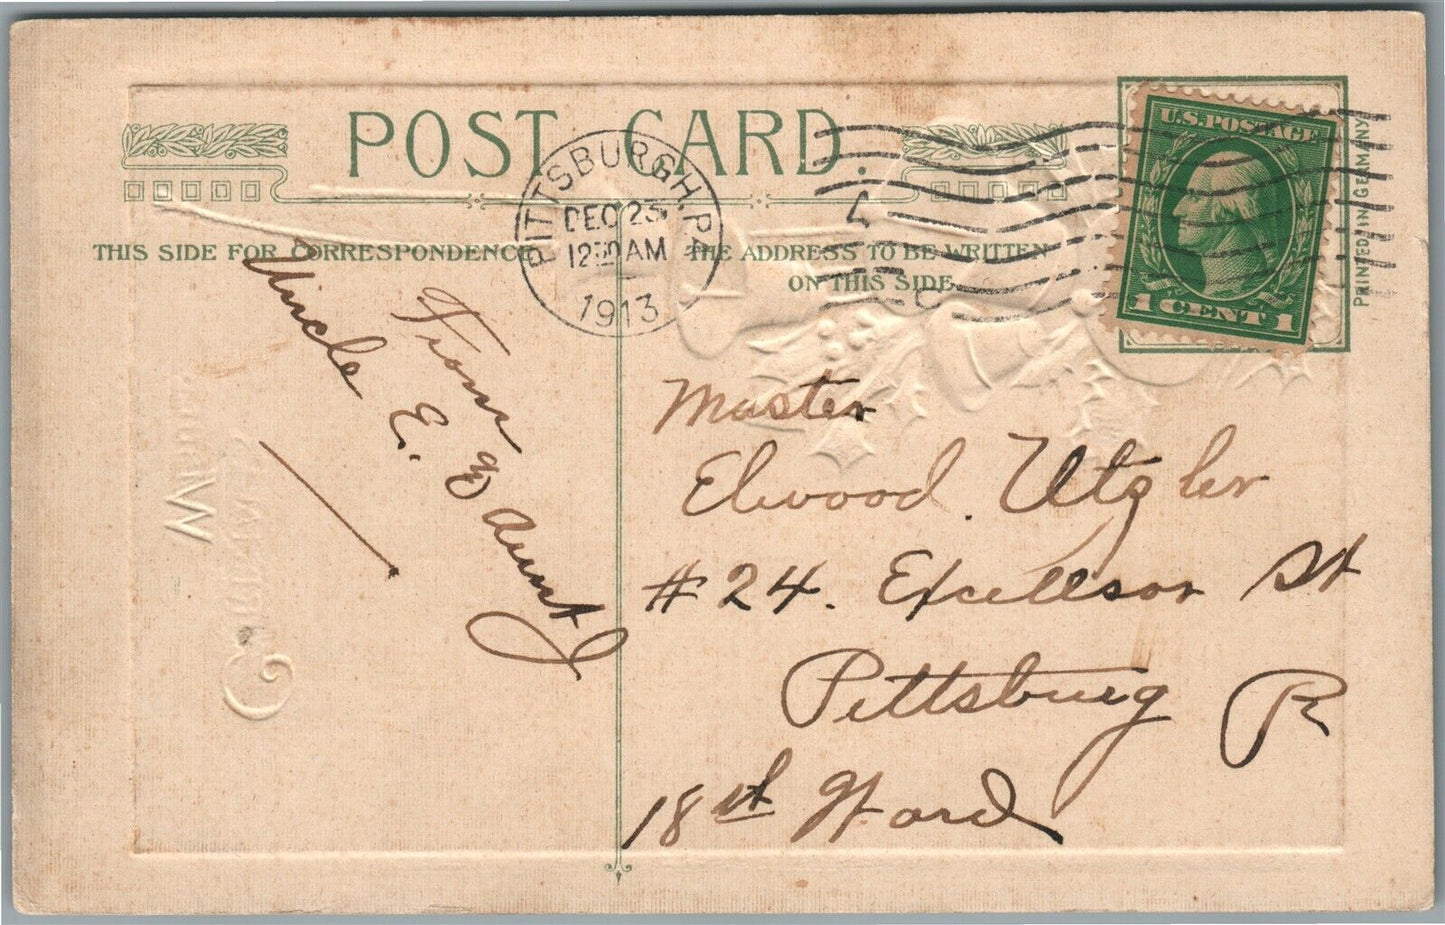 POST CARD.
THIS SIDE FOR CORRESPONDENCE
THE ADDRESS TO BE WRITTEN
ON THIS SIDE
PITTSBURGH, PA
DEC 23
12 AM
1913
U.S. POSTAGE
1 CENT 1
PRINTED IN GERMANY
From
Uncle E. & Aunt J
Master
Elwood Utzler
#24. Excellsor St
Pittsburg P
18th Ward